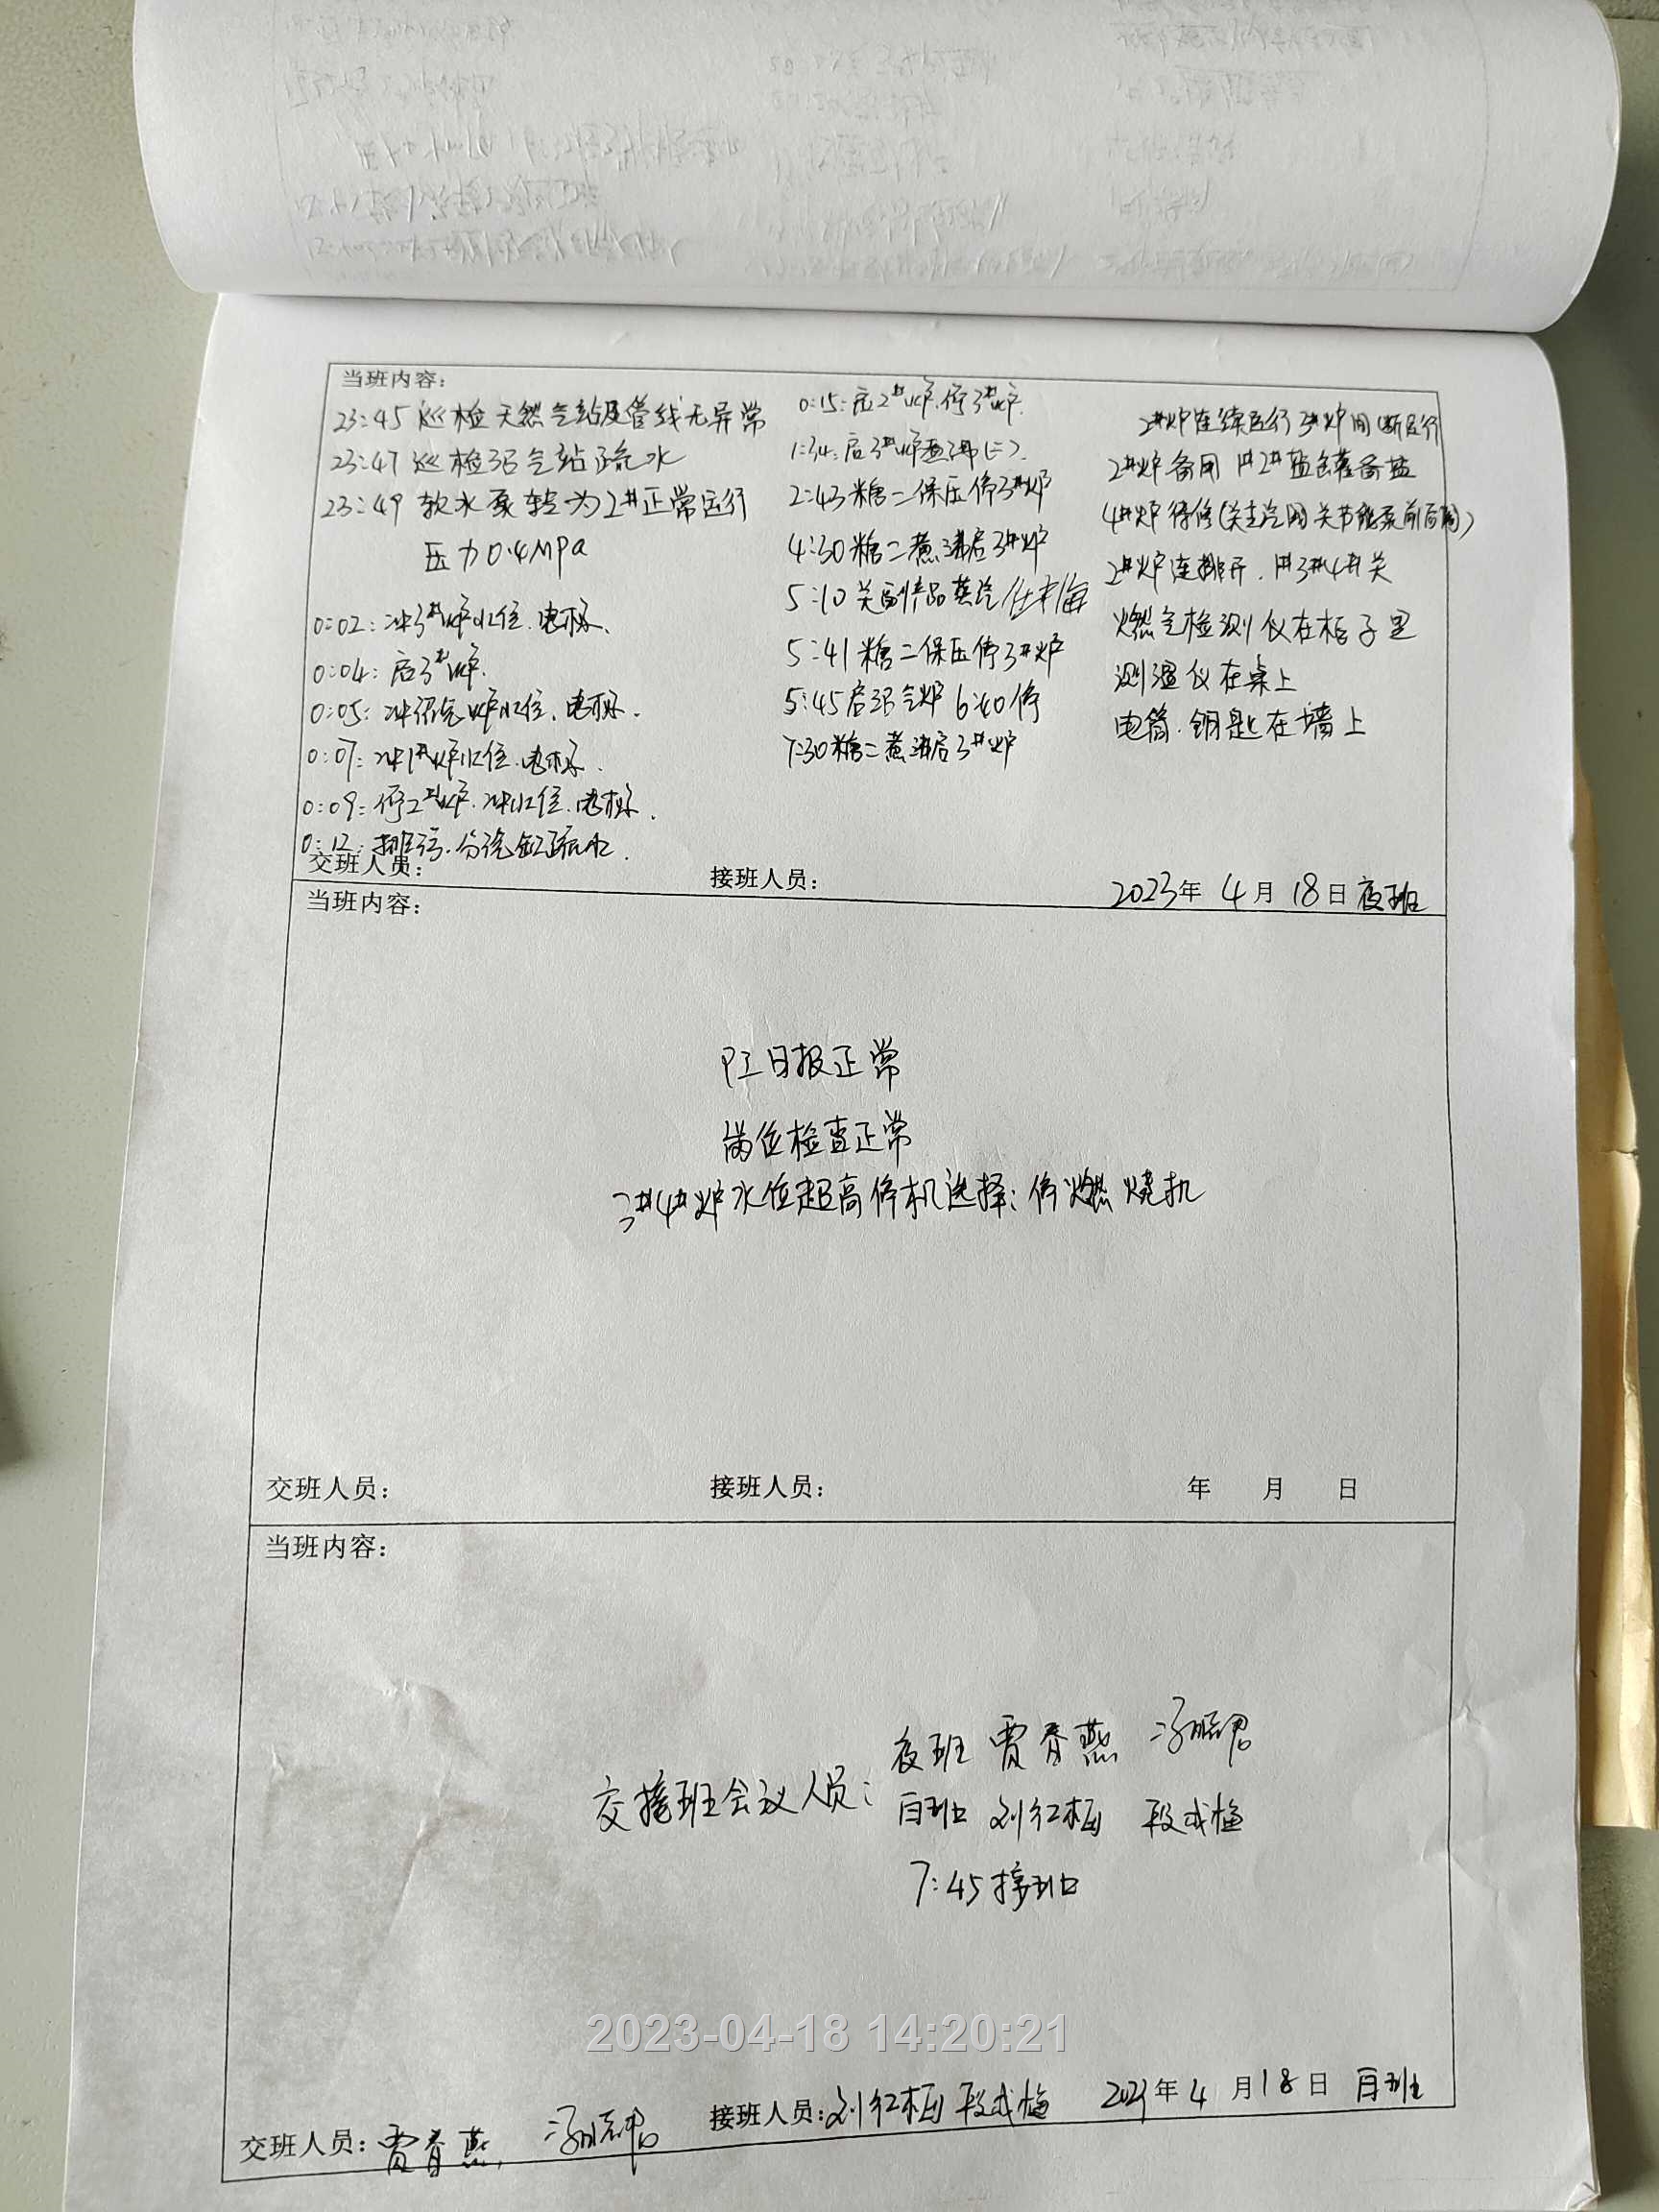 当班内容:
23:45 巡检天然气站及管线无异常
23:47 巡检沼气站疏水
23:49 软水泵转为2#正常运行
压力0.4MPa
0:02: 冲3#炉水位.电极.
0:04: 启3#炉.
0:05: 冲沼气炉水位.电极.
0:07: 冲1#炉水位.电极.
0:09: 停2#炉.冲水位.电极.
0:12: 排污.分汽缸疏水.
0:15: 启2#炉.停3#炉.
1:34: 启3#炉煮沸(二).
2:43 糖二保压停3#炉
4:30 糖二煮沸启3#炉
5:10 关副产品蒸汽
5:41 糖二保压停3#炉
5:45 启沼气炉 6:40停
7:30 糖二煮沸启3#炉
2#炉连续运行 3#炉间断运行
2#炉备用 1#2#盐罐备盐
4#炉待修(关主汽阀 关节能泵前后阀)
2#炉连排开. 1#3#4#关
燃气检测仪在柜子里
测温仪在桌上
电筒.钥匙在墙上
交班人员:
接班人员:
2023年 4月 18日 夜班
当班内容:
日报正常
岗位检查正常
3#4#炉水位超高停机选择: 停燃烧机
交班人员:
接班人员:
年 月 日
当班内容:
交接班会议人员:
夜班 贾春燕
白班 刘红梅 段成梅
7:45接班
2023-04-18 14:20:21
交班人员: 贾春燕
接班人员: 刘红梅 段成梅
2023年 4月 18日 白班